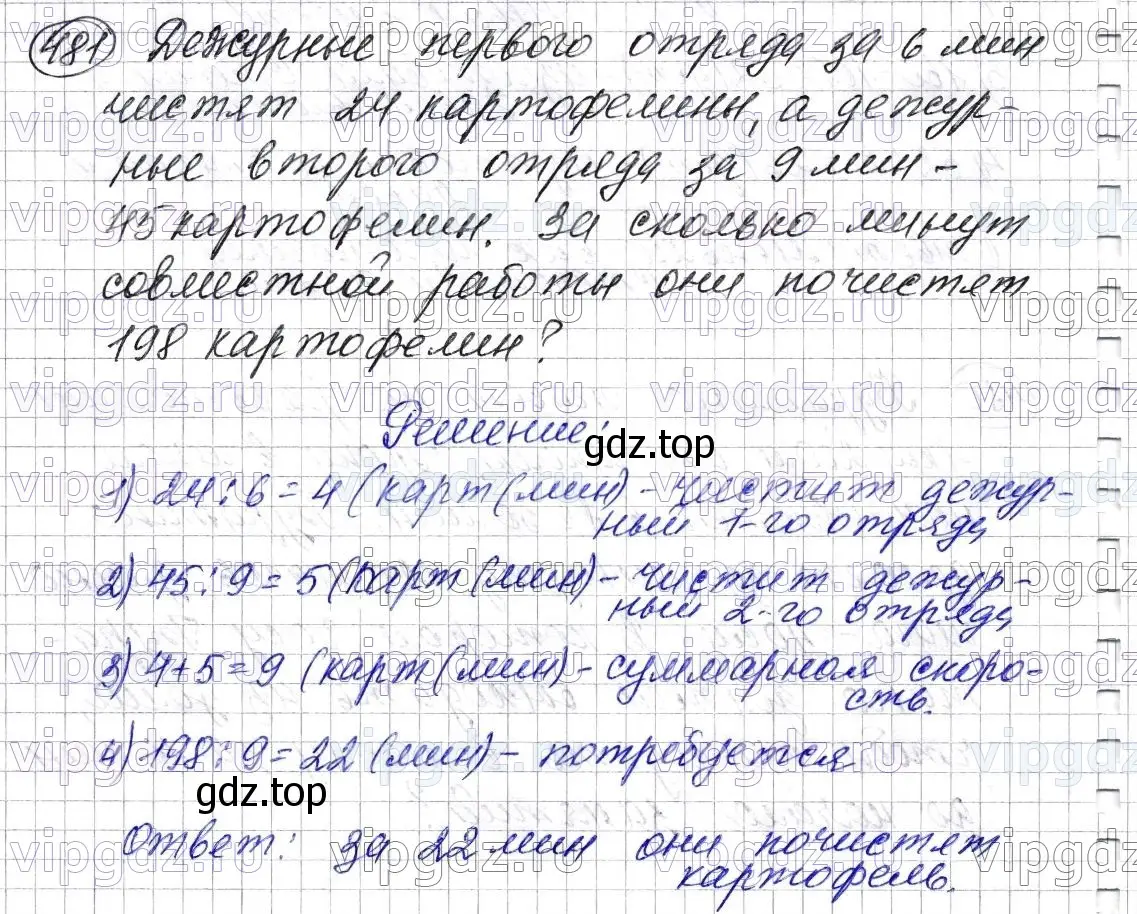 481 Дежурные первого отряда за 6 мин
чистят 24 картофелины, а дежур-
ные второго отряда за 9 мин -
45 картофелин. За сколько минут
совместной работы они почистят
198 картофелин?
Решение:
gdz.top
1) 24 : 6 = 4 (карт(мин) - чистит дежур-
ный 1-го отряда
2) 45 : 9 = 5 (карт(мин) - чистит дежур-
ный 2-го отряда
3) 4+5=9 (карт(мин) - суммарная скоро-
сть.
4) 198 : 9 = 22 (мин) - потребуется
gdz.top
Ответ: за 22 мин они почистят
картофель.
vipgdz.ru